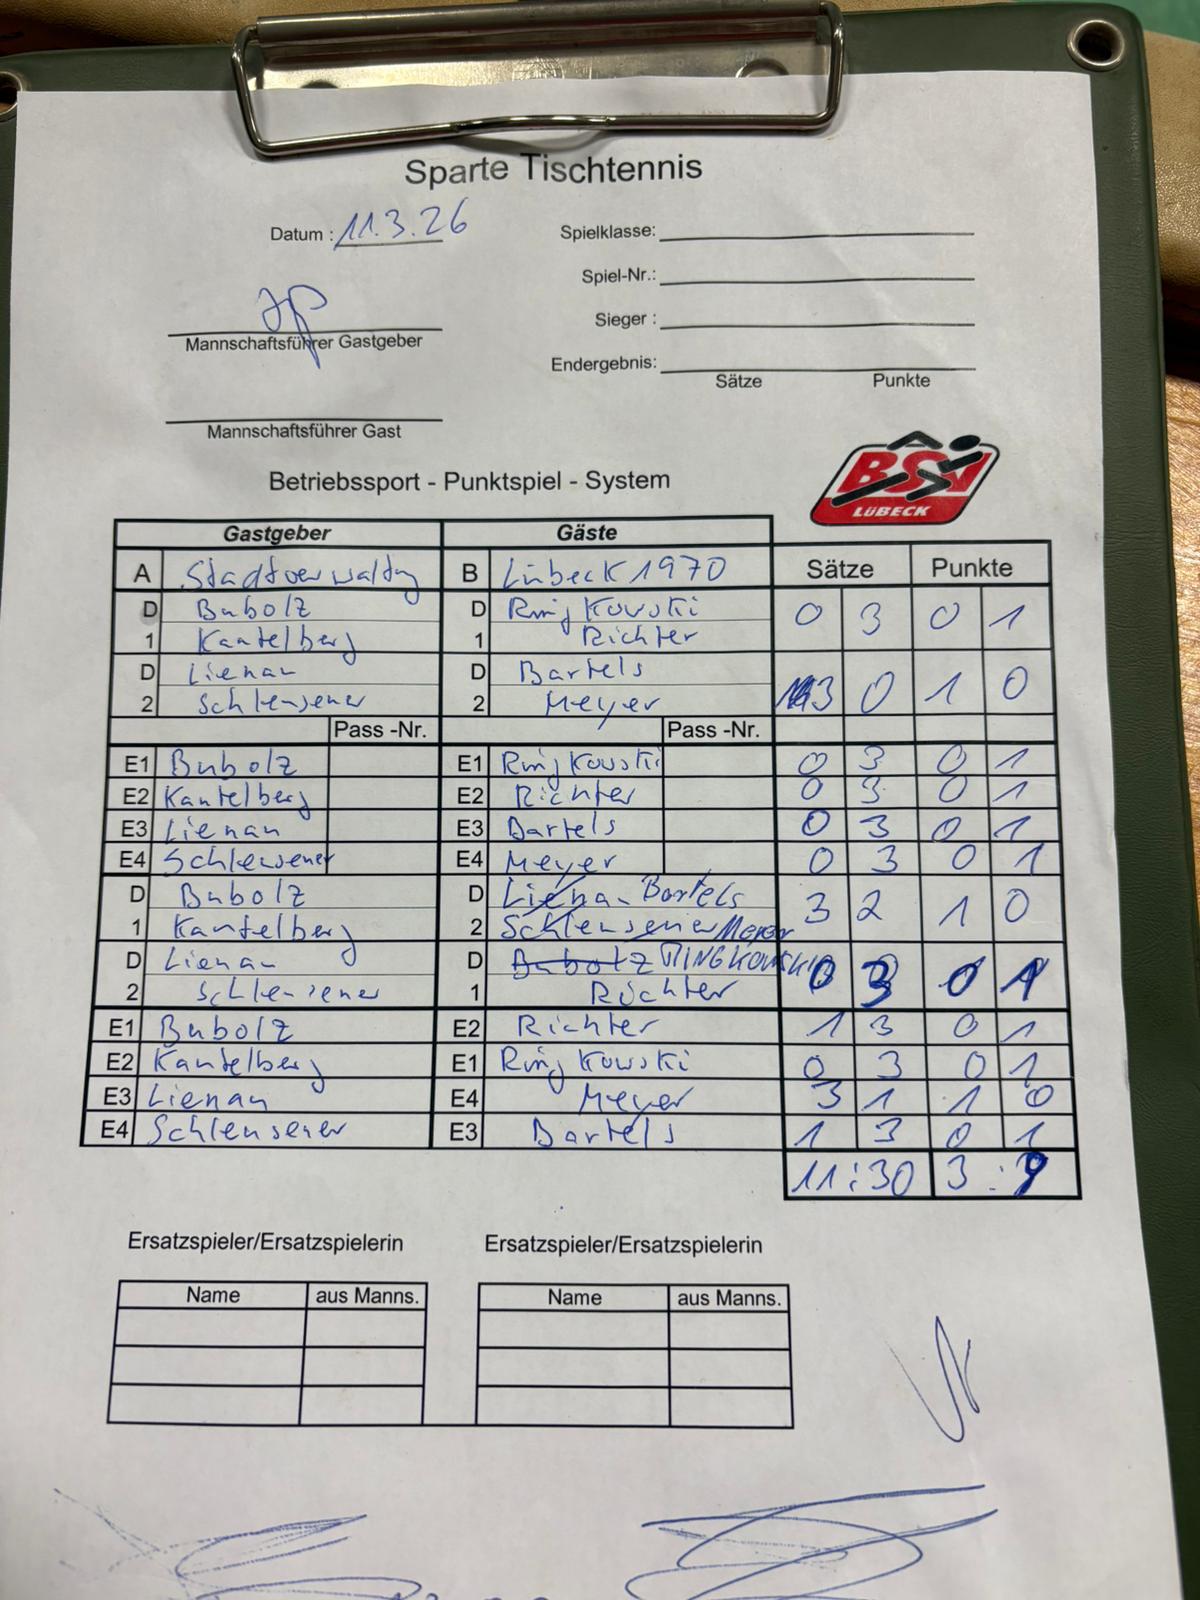 Sparte Tischtennis
Datum : 11.3.26
Spielklasse:
Spiel-Nr.:
Sieger :
Mannschaftsführer Gastgeber
Endergebnis:
Sätze Punkte
Mannschaftsführer Gast
Betriebssport - Punktspiel - System
BSV
LÜBECK
Gastgeber Gäste
A Stadtverwaltg B Lübeck 1970 Sätze Punkte
D Bubolz D Ringkowski 0 3 0 1
1 Kantelberg 1 Richter
D Lienau D Bartels
2 Schleusener 2 Meyer 3 0 1 0
Pass -Nr. Pass -Nr.
E1 Bubolz E1 Ringkowski 0 3 0 1
E2 Kantelberg E2 Richter 0 3 0 1
E3 Lienau E3 Bartels 0 3 0 1
E4 Schleusener E4 Meyer 0 3 0 1
D Bubolz D Liena- Bartels 3 2 1 0
1 Kantelberg 2 Schleusener Meyer
D Lienau D Bubolz RINGKOWSKI 0 3 0 1
2 Schleusener 1 Richter
E1 Bubolz E2 Richter 1 3 0 1
E2 Kantelberg E1 Ringkowski 0 3 0 1
E3 Lienau E4 Meyer 3 1 1 0
E4 Schleusener E3 Bartels 1 3 0 1
11:30 3:9
Ersatzspieler/Ersatzspielerin Ersatzspieler/Ersatzspielerin
Name aus Manns. Name aus Manns.